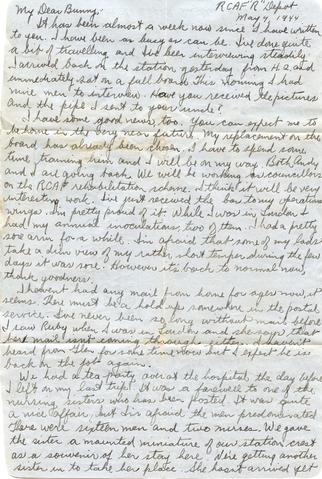 RCAF "R" Depot
May 9, 1944
My Dear Bunny:
It has been almost a week now since I have written
to you. I have been as busy as can be. I've done quite
a bit of travelling and I've been interviewing steadily.
I arrived back on the station yesterday from H.Q. and
immediately sat on a full board. This morning I had
nine men to interview. Have you received the pictures
and the pipe I sent to your uncle?
I have some good news, too. You can expect me to
be home in the very near future. My replacement on the
board has already been chosen. I have to spend some
time training him and I will be on my way. Both Andy
and I are going back. We will be working as councillors
on the RCAF rehabilitation scheme. I think it will be very
interesting work. I've just received the bar to my operations
wings. I'm pretty proud of it. While I was in London I
had my annual inoculations, two of them. I had a pretty
sore arm for a while. I'm afraid that some of my lads
take a dim view of my rather short temper during the few
days it was sore. However its back to normal now,
thank goodness.
I haven't had any mail from home for ages now, it
seems. There must be a hold up somewhere in the postal
service. I've never been so long without mail before.
I saw Ruby when I was in London and she said that
her mail isn't coming through either. I haven't
heard from for some time now but I expect he is
back on the job again.
We had a tea party over at the hospital the day before
I left on my last trip. It was a farewell to one of the
nursing sisters who has been posted. It was quite
a nice affair but I'm afraid the men predominated.
There were sixteen men and two nurses. We gave
the sister a mounted miniature of our station crest
as a souvenir of her stay here. We're getting another
sister in to take her place. She hasn't arrived yet